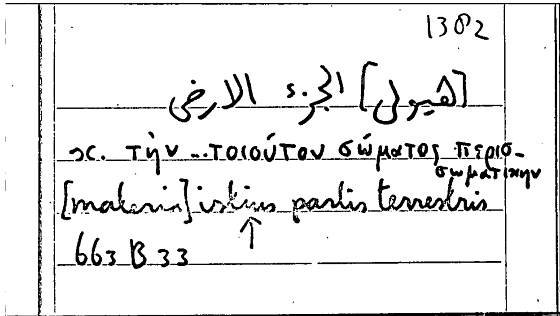 1382
[هيولى] الجزء الارضى
sc. τὴν ... τοιούτου σώματος περισ-
σωματικην
[materia] istius partis terrestris
↑
663 B 33